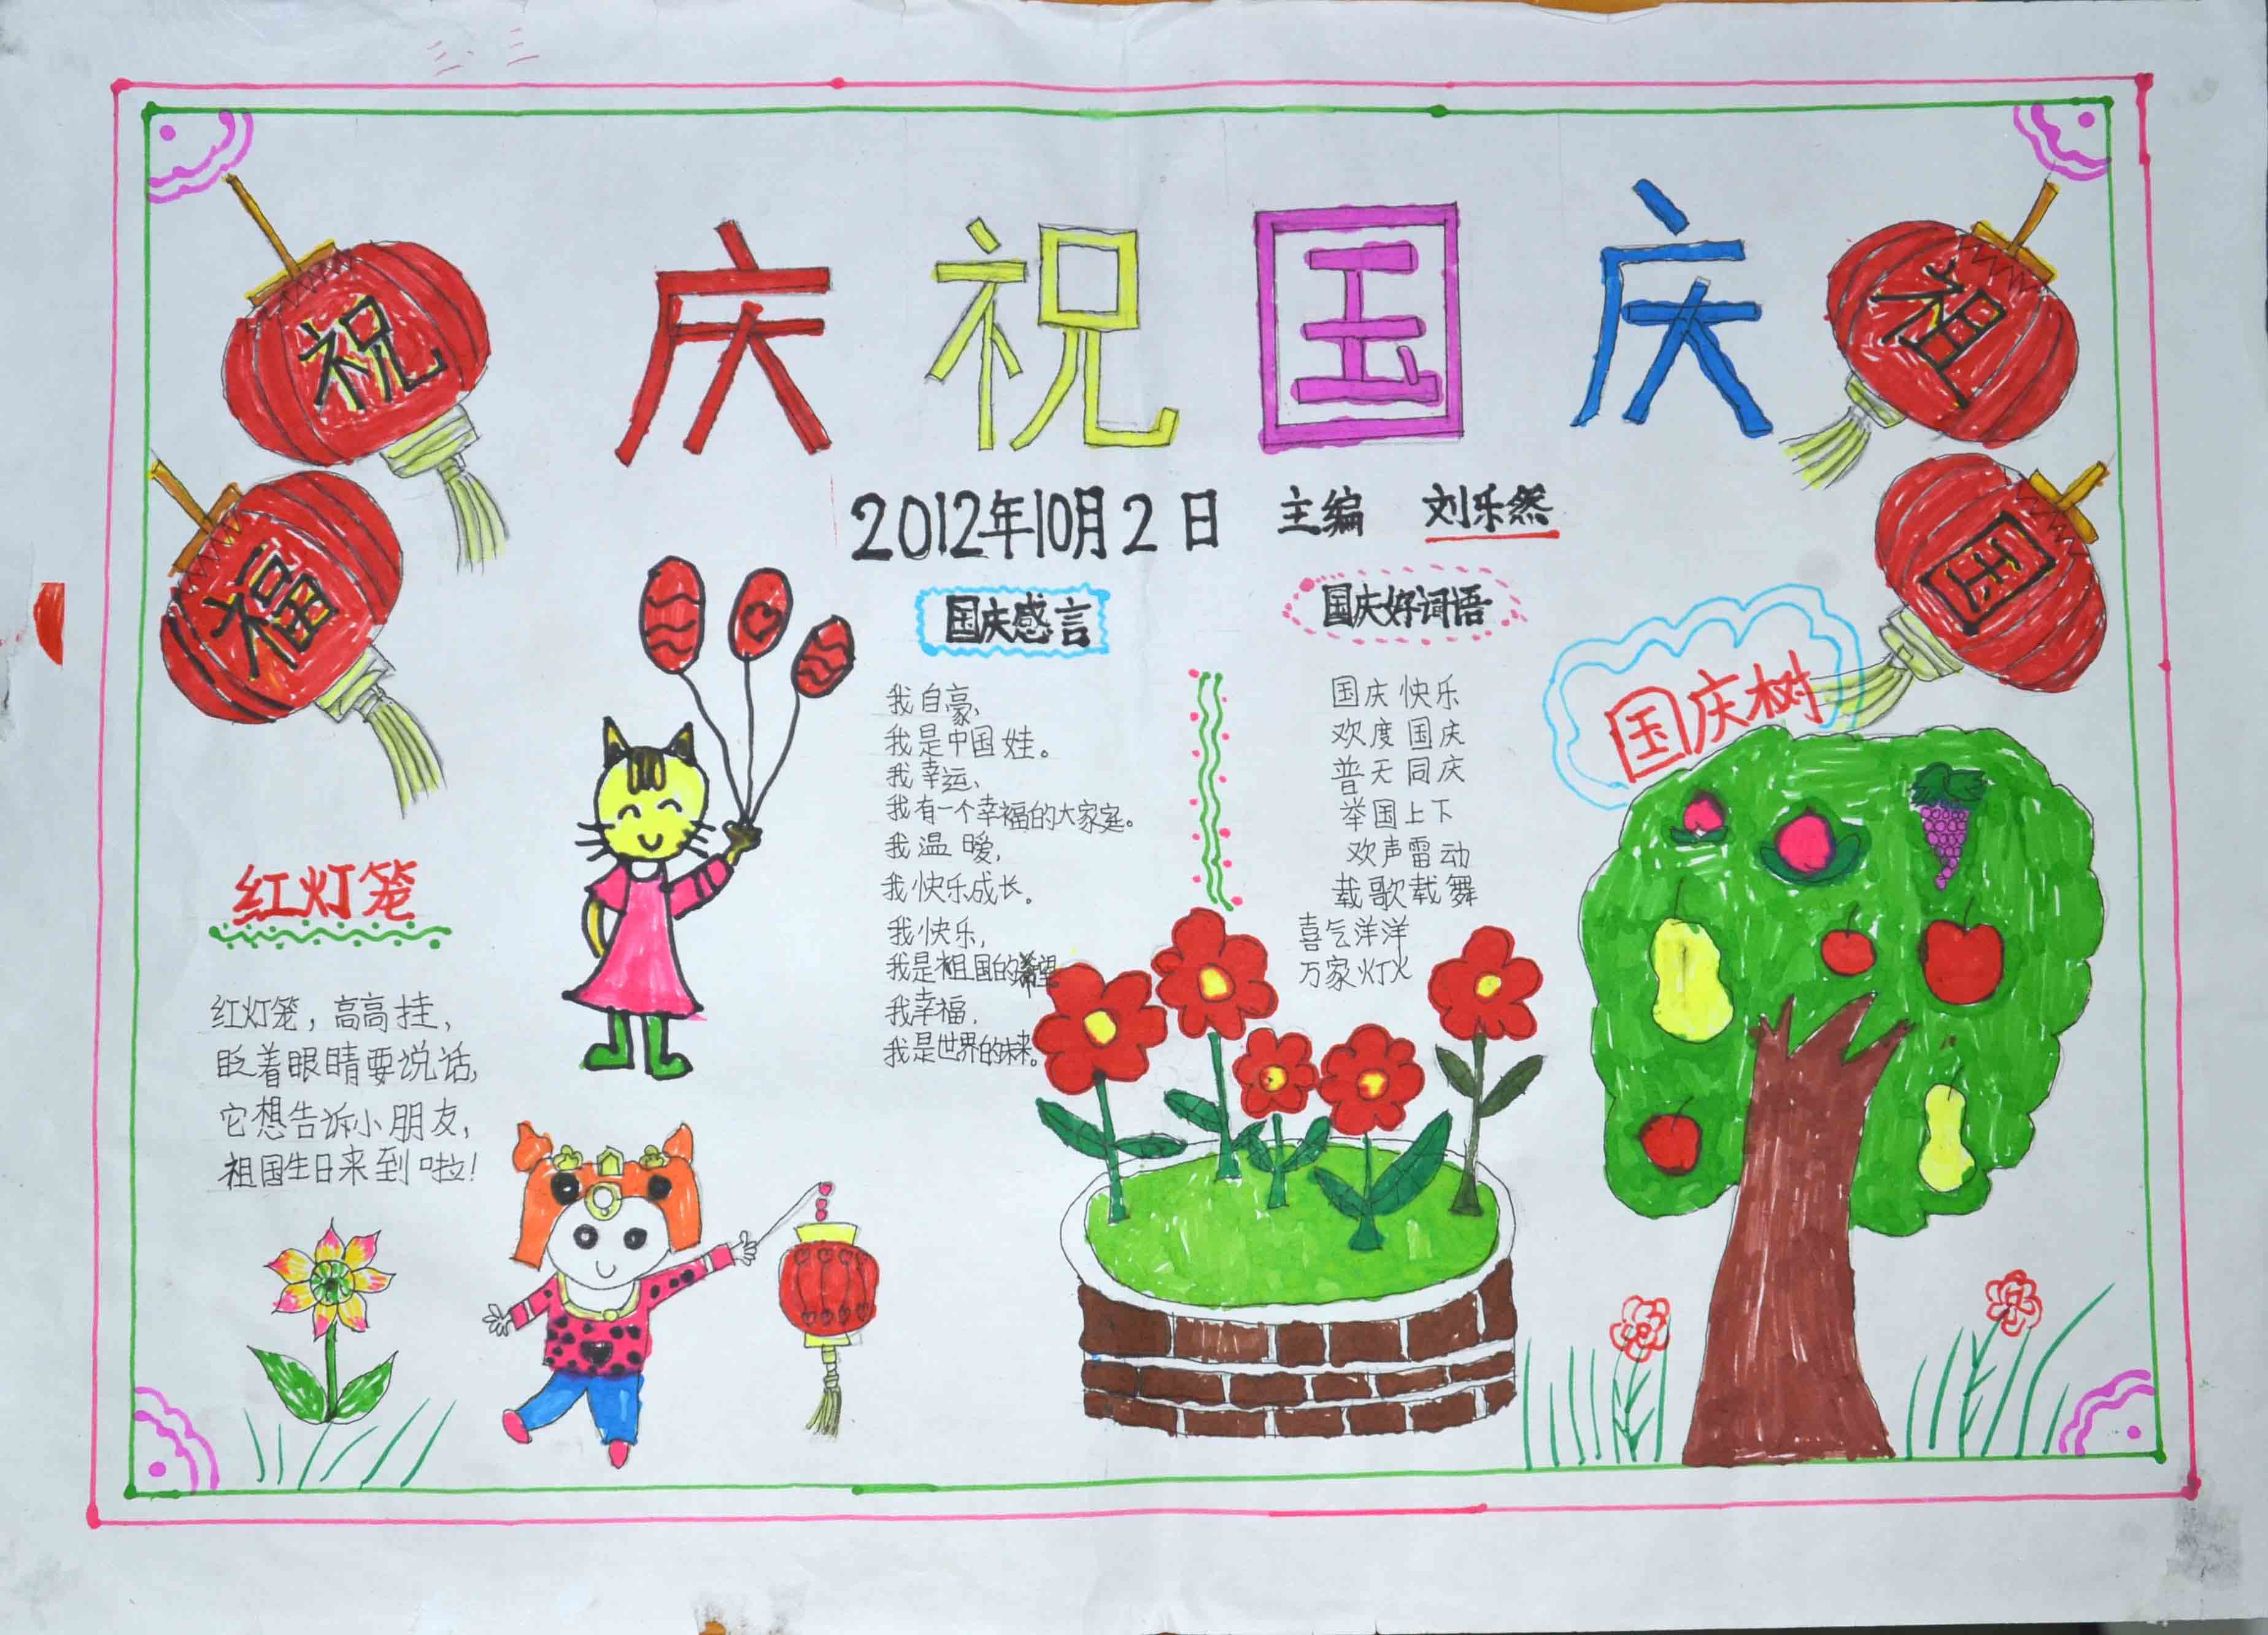 三、三
庆祝国庆
祝
福
祖
国
2012年10月2日 主编 刘乐然
国庆感言
我自豪、
我是中国娃。
我幸运、
我有一个幸福的大家庭。
我温暖,
我快乐成长。
我快乐,
我是祖国的希望。
我幸福,
我是世界的未来。
国庆好词语
国庆快乐
欢度国庆
普天同庆
举国上下
欢声雷动
载歌载舞
喜气洋洋
万家灯火
国庆树
红灯笼
红灯笼，高高挂，
眨着眼睛要说话,
它想告诉小朋友,
祖国生日来到啦!